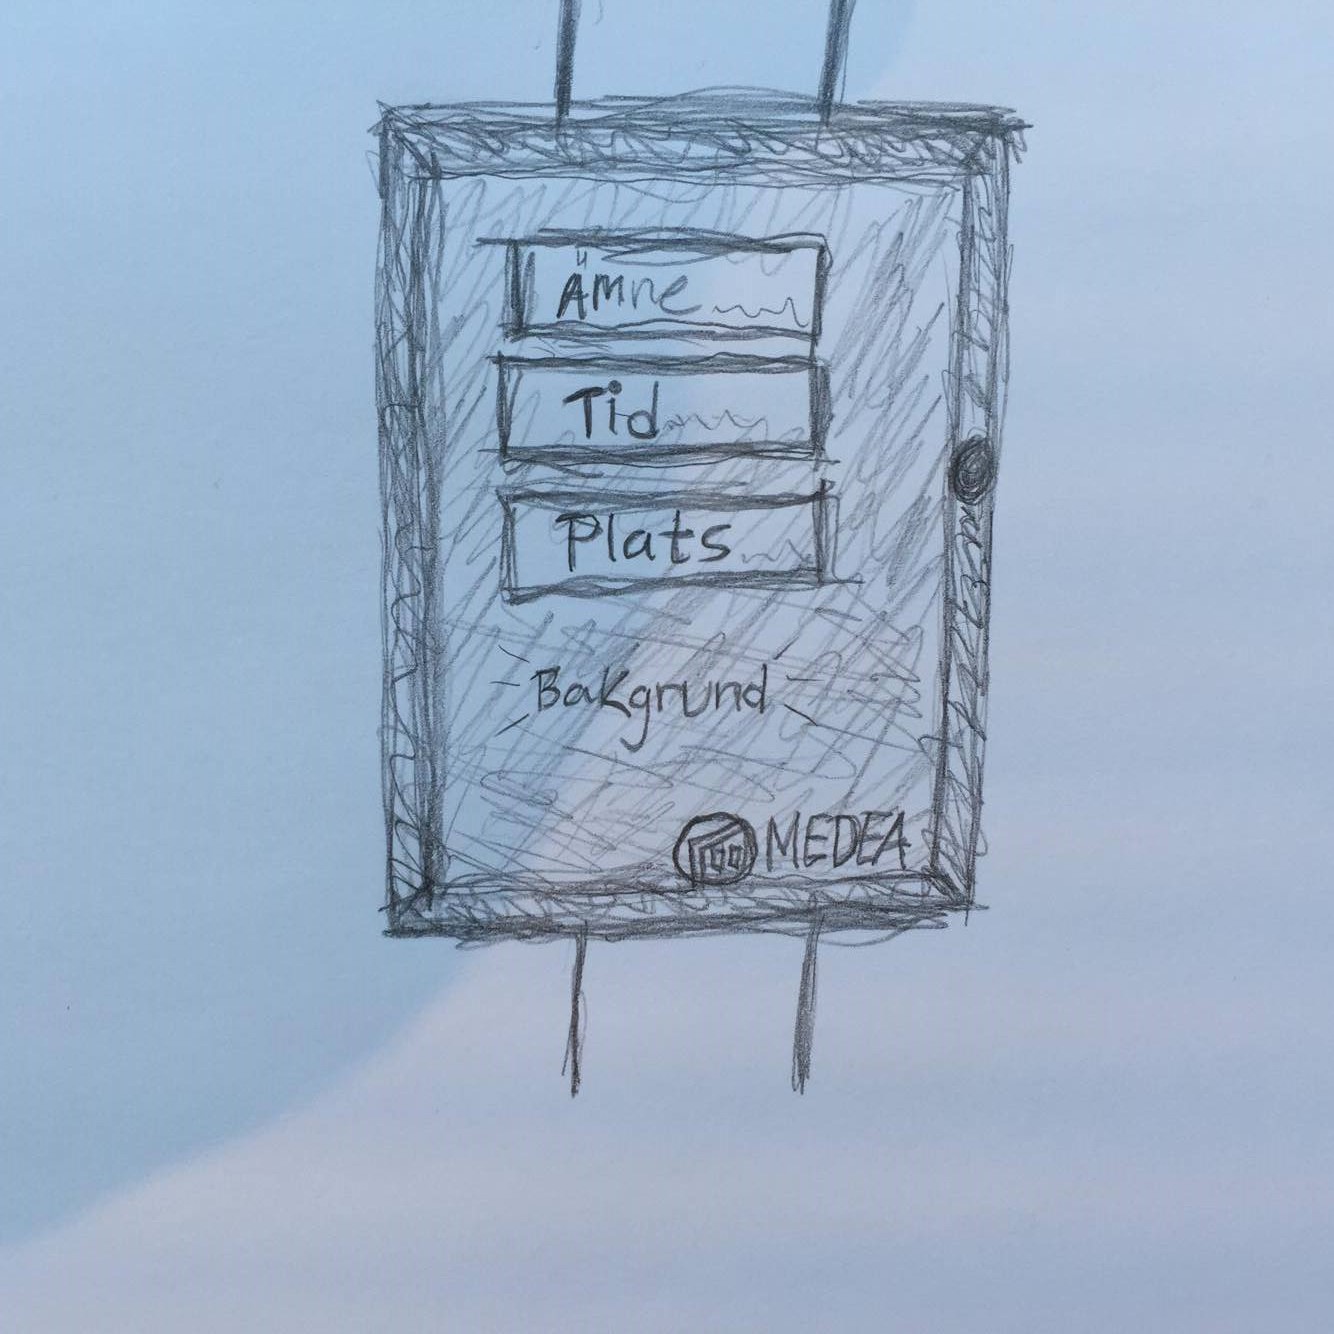 Ämne
Tid
Plats
Bakgrund
MEDEA